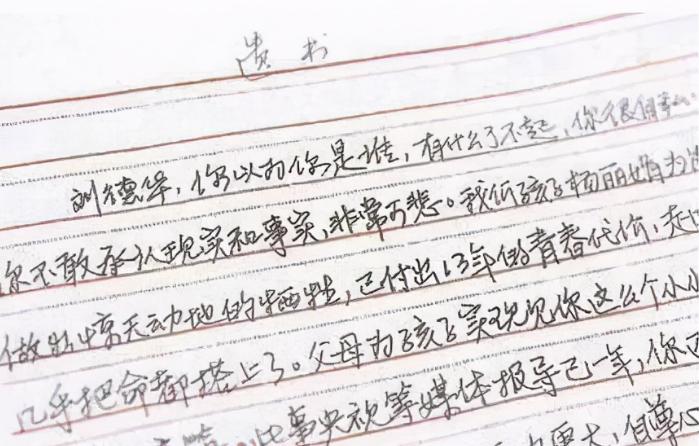 遗书
刘德华，你以为你是谁，有什么了不起，你很自
你不敢承认现实和事实，非常可悲。我们孩子杨丽娟为
做出惊天动地的牺牲，已付出13年的青春代价，走
几乎把命都搭上了。父母为孩子实现见你这么个小小
此事央视等媒体报导已一年，你